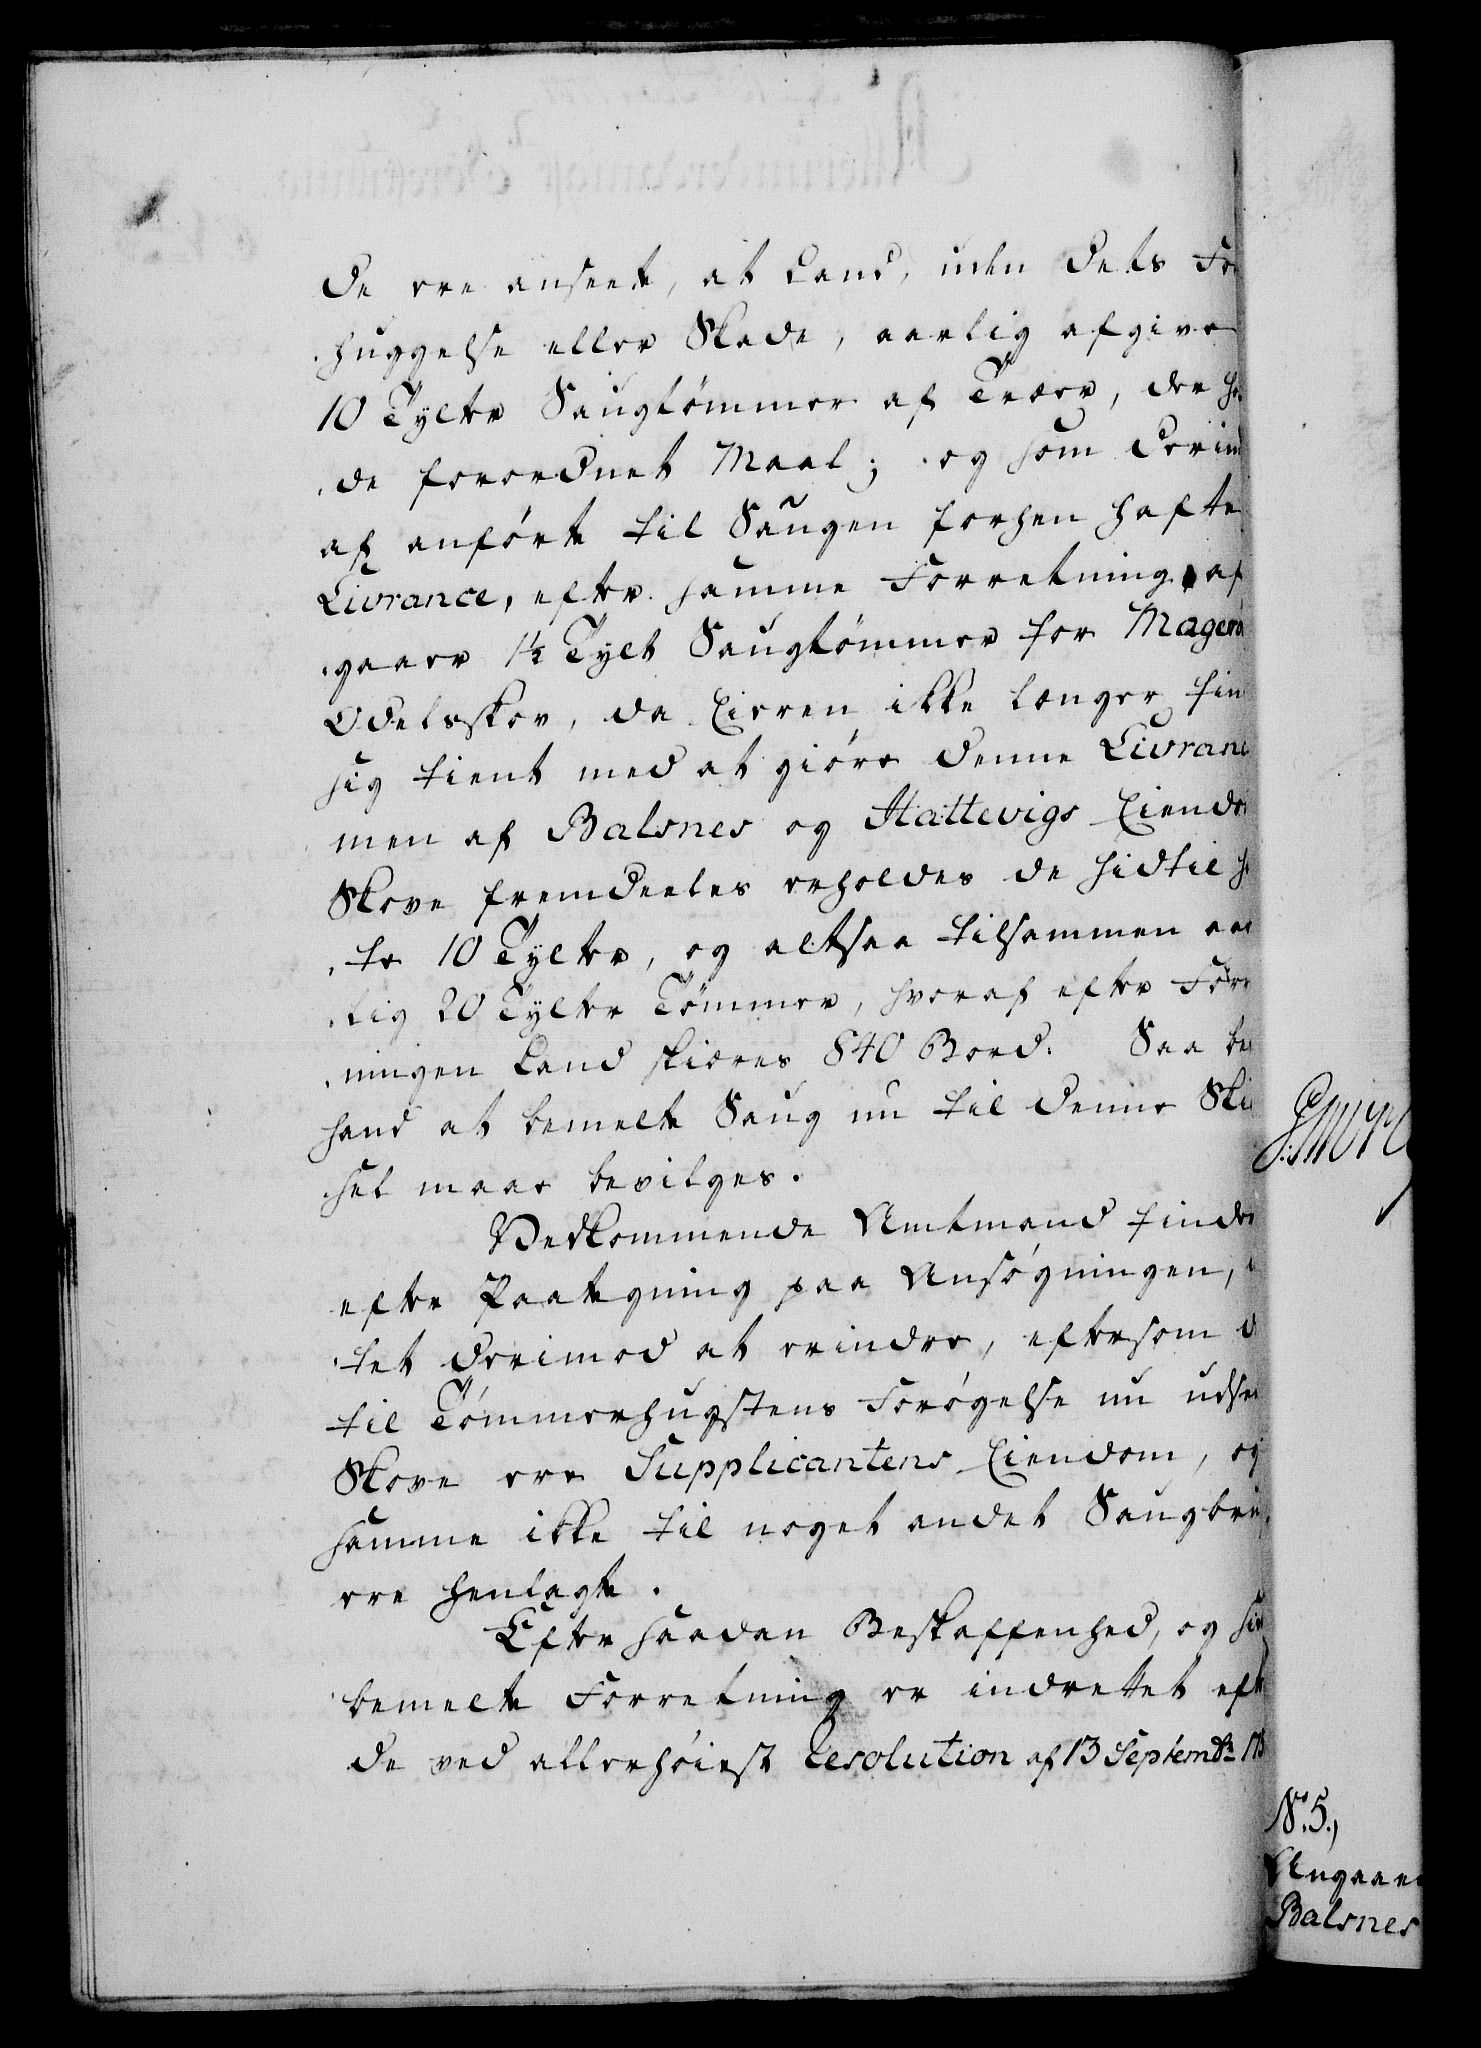 de ere anseet, at kand, uden dets For
huggelse eller Skade, aarlig afgive
10 Tylter Saugtömmer af Træer, der hol
de forordnet Maal; og som derimod
af anførte til Saugen forhen hafte
Livrance, efter samme Forretning, af
gaaer 1½ Tylt Saugtömmer for Magerö
Odelsskov, da Eieren ikke længer fin
sig tient med at giöre denne Livrance
men af Balsnes og Hattevigs Eiendoms
Skove fremdeeles erholdes de hidtil haf
te 10 Tylter, og altsaa tilsammen aar
lig 20 Tylter Tömmer, hvoraf efter Forret
ningen kand skiæres 840 Bord. Saa beder
hand at bemelte Saug nu til denne Skiæ
sel maae bevilges.
Vedkommende Amtmand finder
efter Paategning paa Ansøgningen, in
tet derimod at erindre, eftersom de
til Tömmerhugstens Forøgelse nu udseete
Skove ere Supplicantens Eiendom, og
samme ikke til noget andet Saugbrug
ere henlagte.
Efter saadan Beskaffenhed, og siden
bemelte Forretning er indrettet efter
de ved allerhöiest Resolution af 13 Septembr 17
No. 5.,
Angaaen
Balsnes